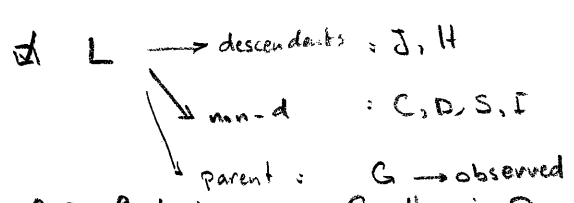 ☑ L → descendents : J, H
non-d : C, D, S, I
parent : G → observed